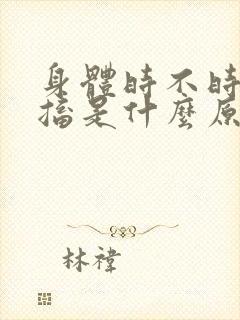 身體時不時
搐是什麼原
林禕